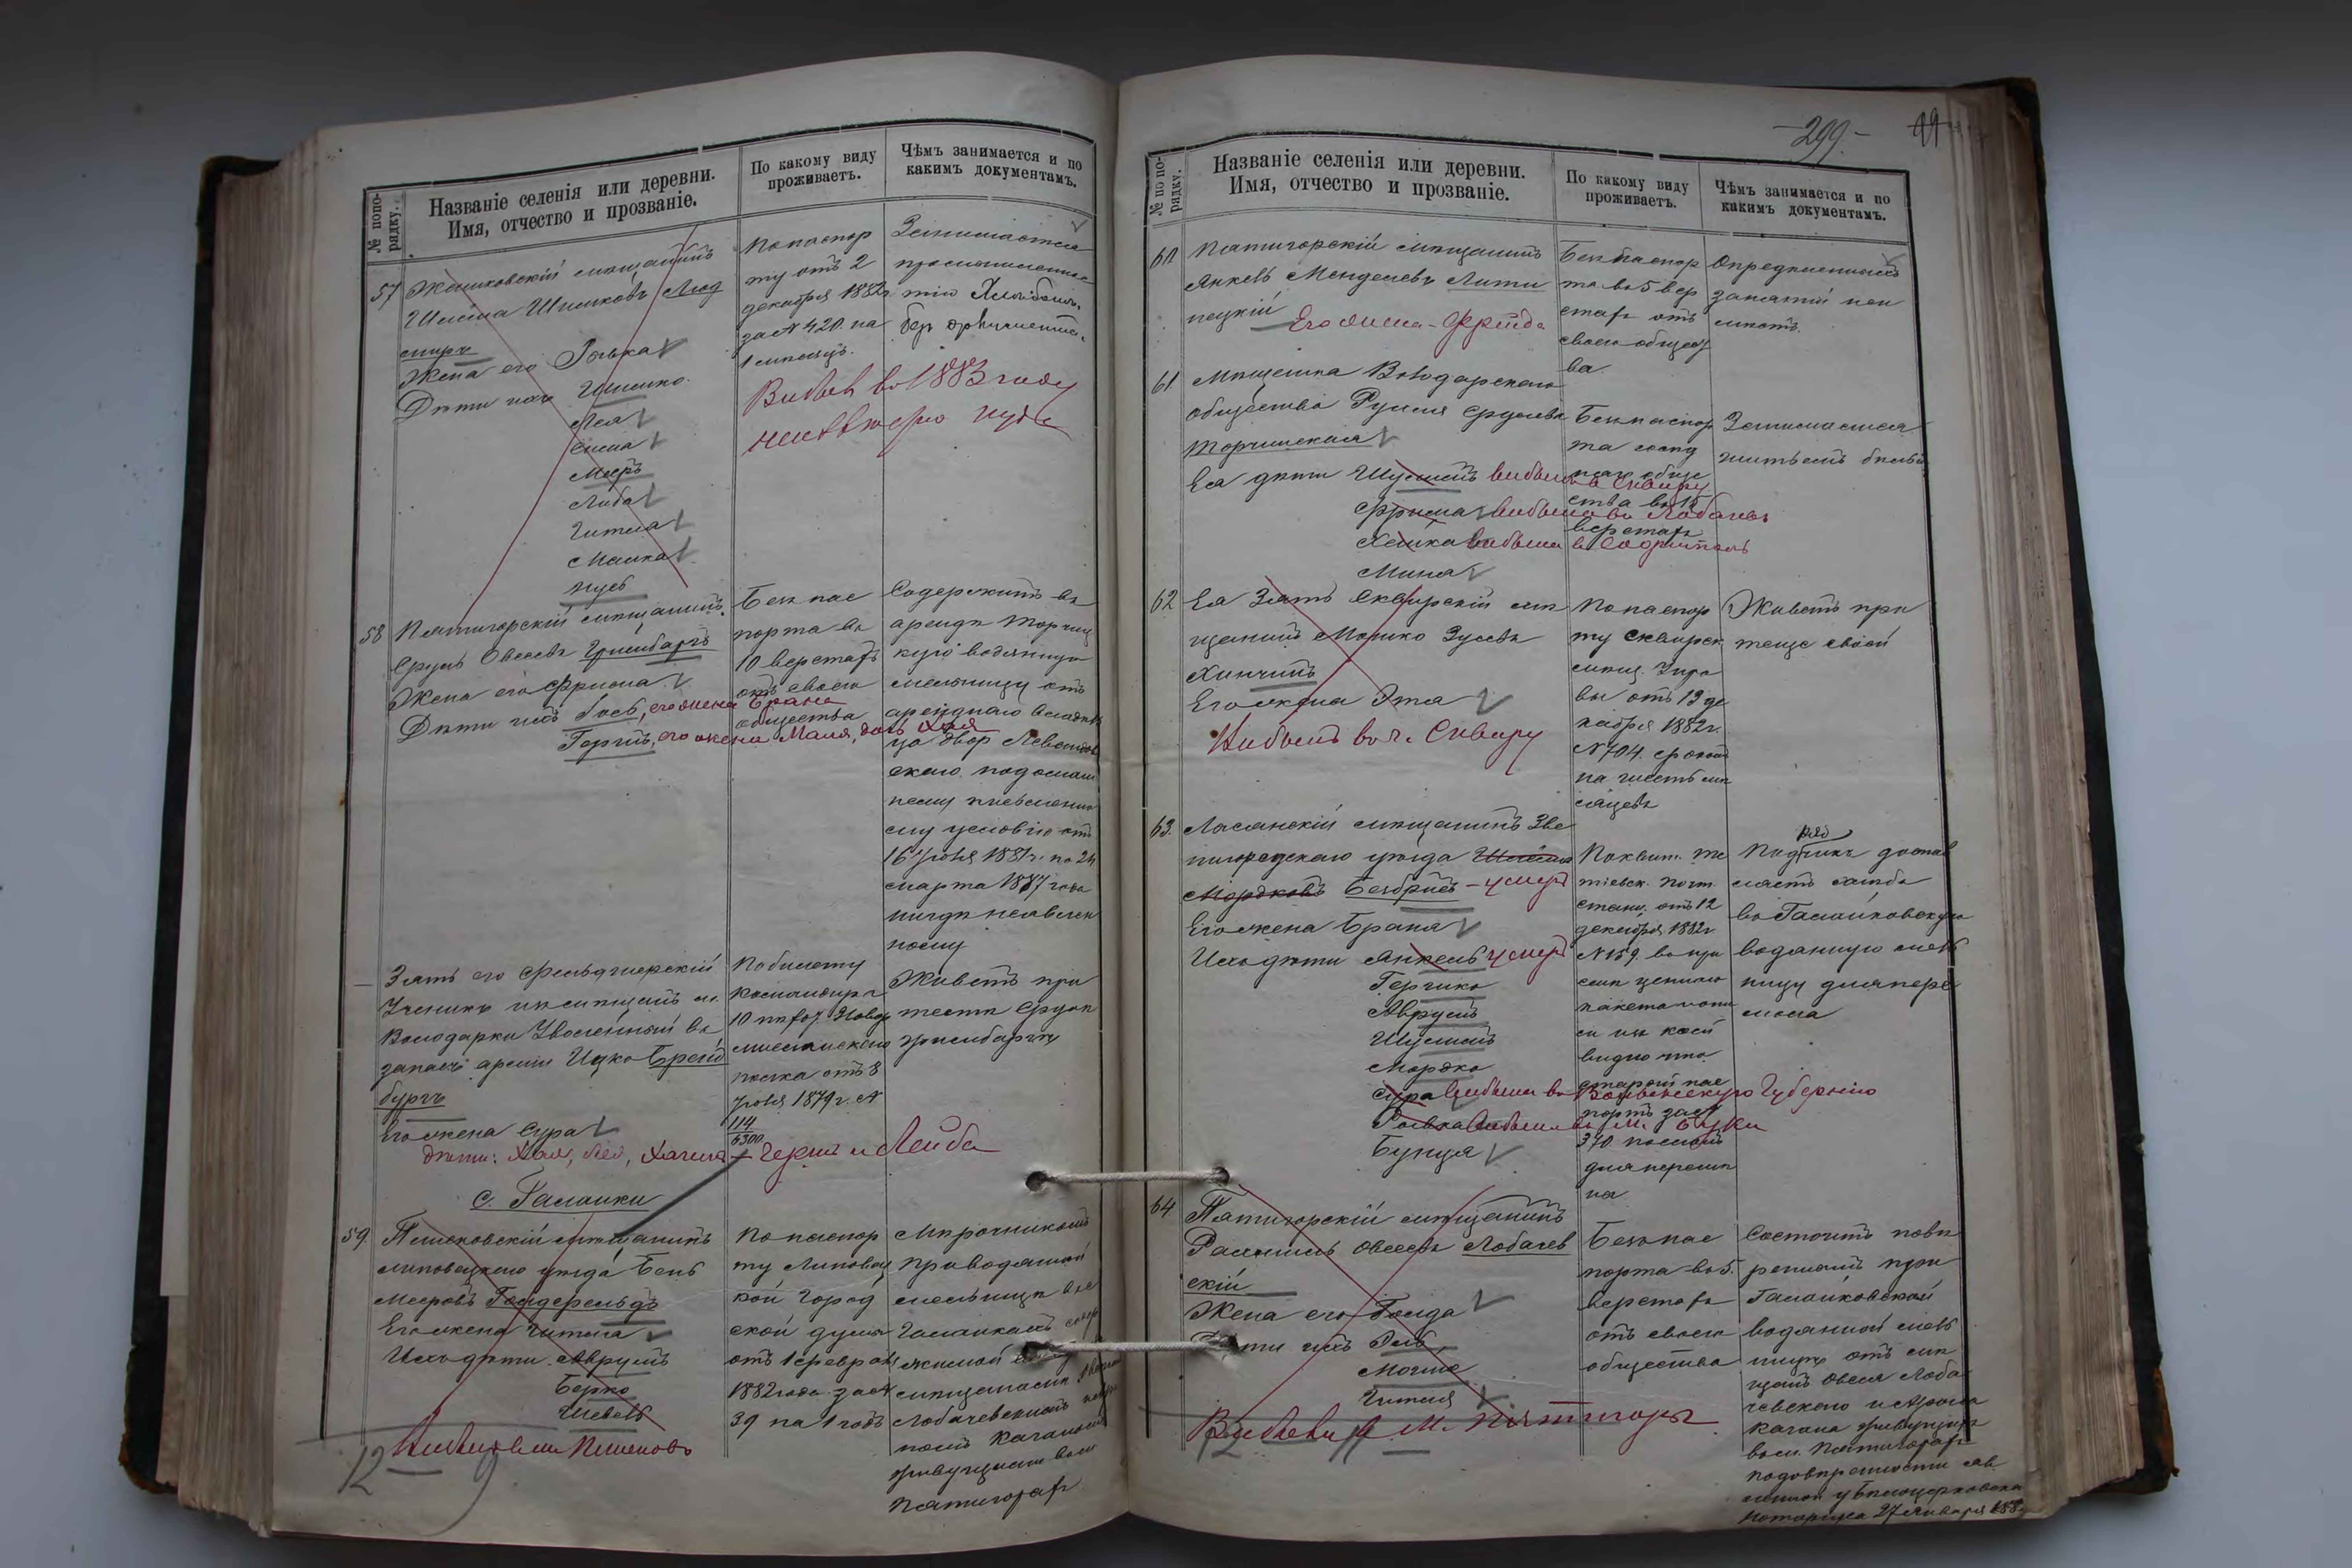 № по по-
рядку.
Названіе селенія или деревни.
Имя, отчество и прозваніе.
По какому виду
проживаетъ.
Чѣмъ занимается и по
какимъ документамъ.
57
Жашковскій мѣщанинъ
Жена его Ровка
Дѣти ихъ
Лея
Сима
Мееръ
Либа
Гитля
Малка
По паспор
ту отъ 2
декабря 1882 г
за № 420. на
1 мѣсяцъ.
Занимается
Выбылъ въ 1883 году
неизвѣстно куда
58
Пятигорскій мѣщанинъ
Сруль Овсеевъ Гринбаргъ
Жена его Фрима
Дѣти ихъ Іосъ, его жена Брана
Гершъ, его жена Маля, дочь Хая
Безъ пас
порта въ
10 верстахъ
отъ своего
общества
Содержитъ въ
арендѣ Торчиц
кую водяную
мельницу отъ
аренднаго владѣль
ца двор Левандов
скаго по домаш
нему письменно
му условію отъ
16 Іюня 1881 г. по 24
марта 1887 года
нигдѣ неявлен
ному
—
Зять его Фельдшерскій
Ученикъ изъ мѣщанъ м.
Володарки Уволенный въ
запасъ арміи Ицко Брейд
бургъ
Его жена Сура
дѣти: Хая, Лея, Хачель — Гершъ и Лейба
По билету
Командира
10 пѣхот. Новои
полка отъ 8
Іюня 1879 г. №
114
6300
Живетъ при
тестѣ Срулѣ
Гринбаргѣ
с. Галайки
59.
Пешковскій мѣщанинъ
липовецкаго уѣзда Бень
Мееровъ Гольдерфельдъ
Его жена Гитля
Ихъ дѣти Аврумъ
Берко
Шевель
По паспор
ту Липовец
кой Город
ской думы
отъ 1 февраля
1882 года за №
39 на 1 годъ
Мирочникомъ
при водяной
мельницѣ въ с
Галайкахъ
Лобачевскимъ
Каганомъ
живущими въ м
Пятигорахъ
12 9
— 299. —
99
№ по по-
рядку.
Названіе селенія или деревни.
Имя, отчество и прозваніе.
По какому виду
проживаетъ.
Чѣмъ занимается и по
какимъ документамъ.
60
Пятигорскій мѣщанинъ
Янкель Менделевъ Липи
нецкій
Его жена - Фрейда
Безъ паспор
та въ 5 вер
стахъ отъ
своего общест
ва.
Опредѣленныхъ
занятій неи
мѣетъ.
61.
Мѣщанка Володарскаго
общества Рухля Срулева
Торчинская
Ея дѣти Шулимъ выбылъ въ Сквиру
Фрима выбыла въ Лобачевъ
Хайка выбыла въ Ставрополь
Мина
Безъ паспор
та сво
его обще
ства въ 15
верстахъ
Занимается
шитьемъ бѣлья
62
Ея Зять Сквирскій мѣ
щанинъ Мошко Зусевъ
Хинчинъ
Его жена Этя
Выбылъ въ г. Сквиру
По паспор
ту Сквирск
мѣщ. Упра
вы отъ 13 де
кабря 1882 г.
№ 704. срокомъ
на шесть мѣ
сяцевъ
Живетъ при
тещѣ своей
63.
Лысянскій мѣщанинъ Зве
нигородскаго уѣзда
Мордковъ — умеръ
Его жена Брана
Ихъ дѣти Янкель умеръ
Гершко
Аврумъ
Шулимъ
Мордко
Сура выбыла въ Волынскую Губернію
Ровка выбыла въ м. Буки
Бунця
По квит. Те
тіевск. почт.
станц. отъ 12
декабря 1882 г
№ 159. въ прі
емѣ цѣннаго
пакета
изъ коей
видно что
старый пас
портъ за №
370. посланъ
для перемѣ
на
Подрядчикъ достав
ляетъ хлѣба
въ Галайковскую
водянную мель
ницу для пере
мола
64
Пятигорскій мѣщанинъ
Рахмиль Овсеевъ Лобачев
скій
Жена его Голда
Дѣти ихъ
Мошко
Гитля
Выбыли въ м. Пятигоры
Безъ пас
порта въ 5.
верстахъ
отъ своего
общества
Состоитъ повѣ
реннымъ при
Галайковской
водянной мель
ницѣ отъ мѣ
щанъ Овсея Лоба
чевскаго и Арона
Кагана живущихъ
въ м. Пятигорахъ
по довѣренности яв
ленной у Бѣлоцерковскаго
Нотаріуса 27 января 188
12 11